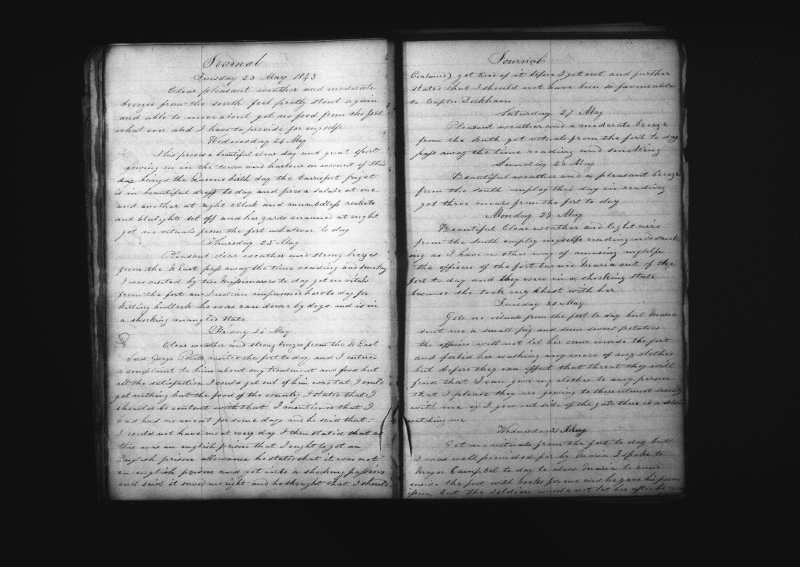 Journal
Tuesday 23 May 1843
Clear pleasant weather and moderate
breezes from the south feel pretty stout again
and able to move about got no food from the fort
what ever and I have to provide for myself
Wednesday 24 May
This proved a beautiful clear day and great sport
going on in the town and harbour on account of this
day being the Queens birth day the Carrysfort
is in beautiful dress to day and fired a salute at one
and another at eight oClock and numbdless rockets
and blulights set off and her yards manned at night
got no vituals from the fort whatever to day
Thursday 25 May
Pleasant clear weather and strong brezes
from the N East pass away the time reading and smoking
I was visited by two Missionaries to day got no vituals
from the fort an Indian imprisoned here to day for
killing bullock he was ran down by dogs and is in
a shocking mangled state
26 May
Clear weather and strong brezes from the N East
Lord George Paulet visited the fort to day and I entered
a complaint to him about my treatment and food but
all the satisfaction I could get out of him was that I could
get nothing but the food of the country I stated that I
should be content with that I mentioned that I
had had no meat for some days and he said that
I could not have meat every day I then stated that as
this was an english prison that I ought to get an
English prison allowance he stated that it was not
an english prison and got into a shocking passion
and said it served me right and he thought that I should
Journal
get tired of it before I got out and further
states that I should not have been so
to Captn
Saturday 27 May
Pleasant weather and a moderate breeze
from the South got vituals from the fort to day
pass away the time reading and smoking
Sunday 28 May
Beautiful weather and a pleasant breeze
from the south employ this day in reading
got three meals from the fort to day
Monday 29 May
Beautiful Clear weather and light airs
from the South employ myself reading and smok
ing as I have no other way of amusing myself
the officers of the fort turned Maria out of the
fort to day and they were in a shocking state
because she took my chest with her
Tuesday 30 May
Gots no vituals from the fort to day but Maria
sent me a small pig and some sweet potatoes
the officers will not let her come inside the fort
and forbid her washing any more of my clothes
but before they can effect that threat they will
find that I can give my clothes to any person
that I please they are
with me if I go out side of the gate there is a
watching me
Wednesday May
Got no vituals from the fort to day but
I was well provided for by Maria I spoke to
Major Campbel to day to alow Maria to come
inside the fort with books for me and he gave his
but the soldiers would not let her